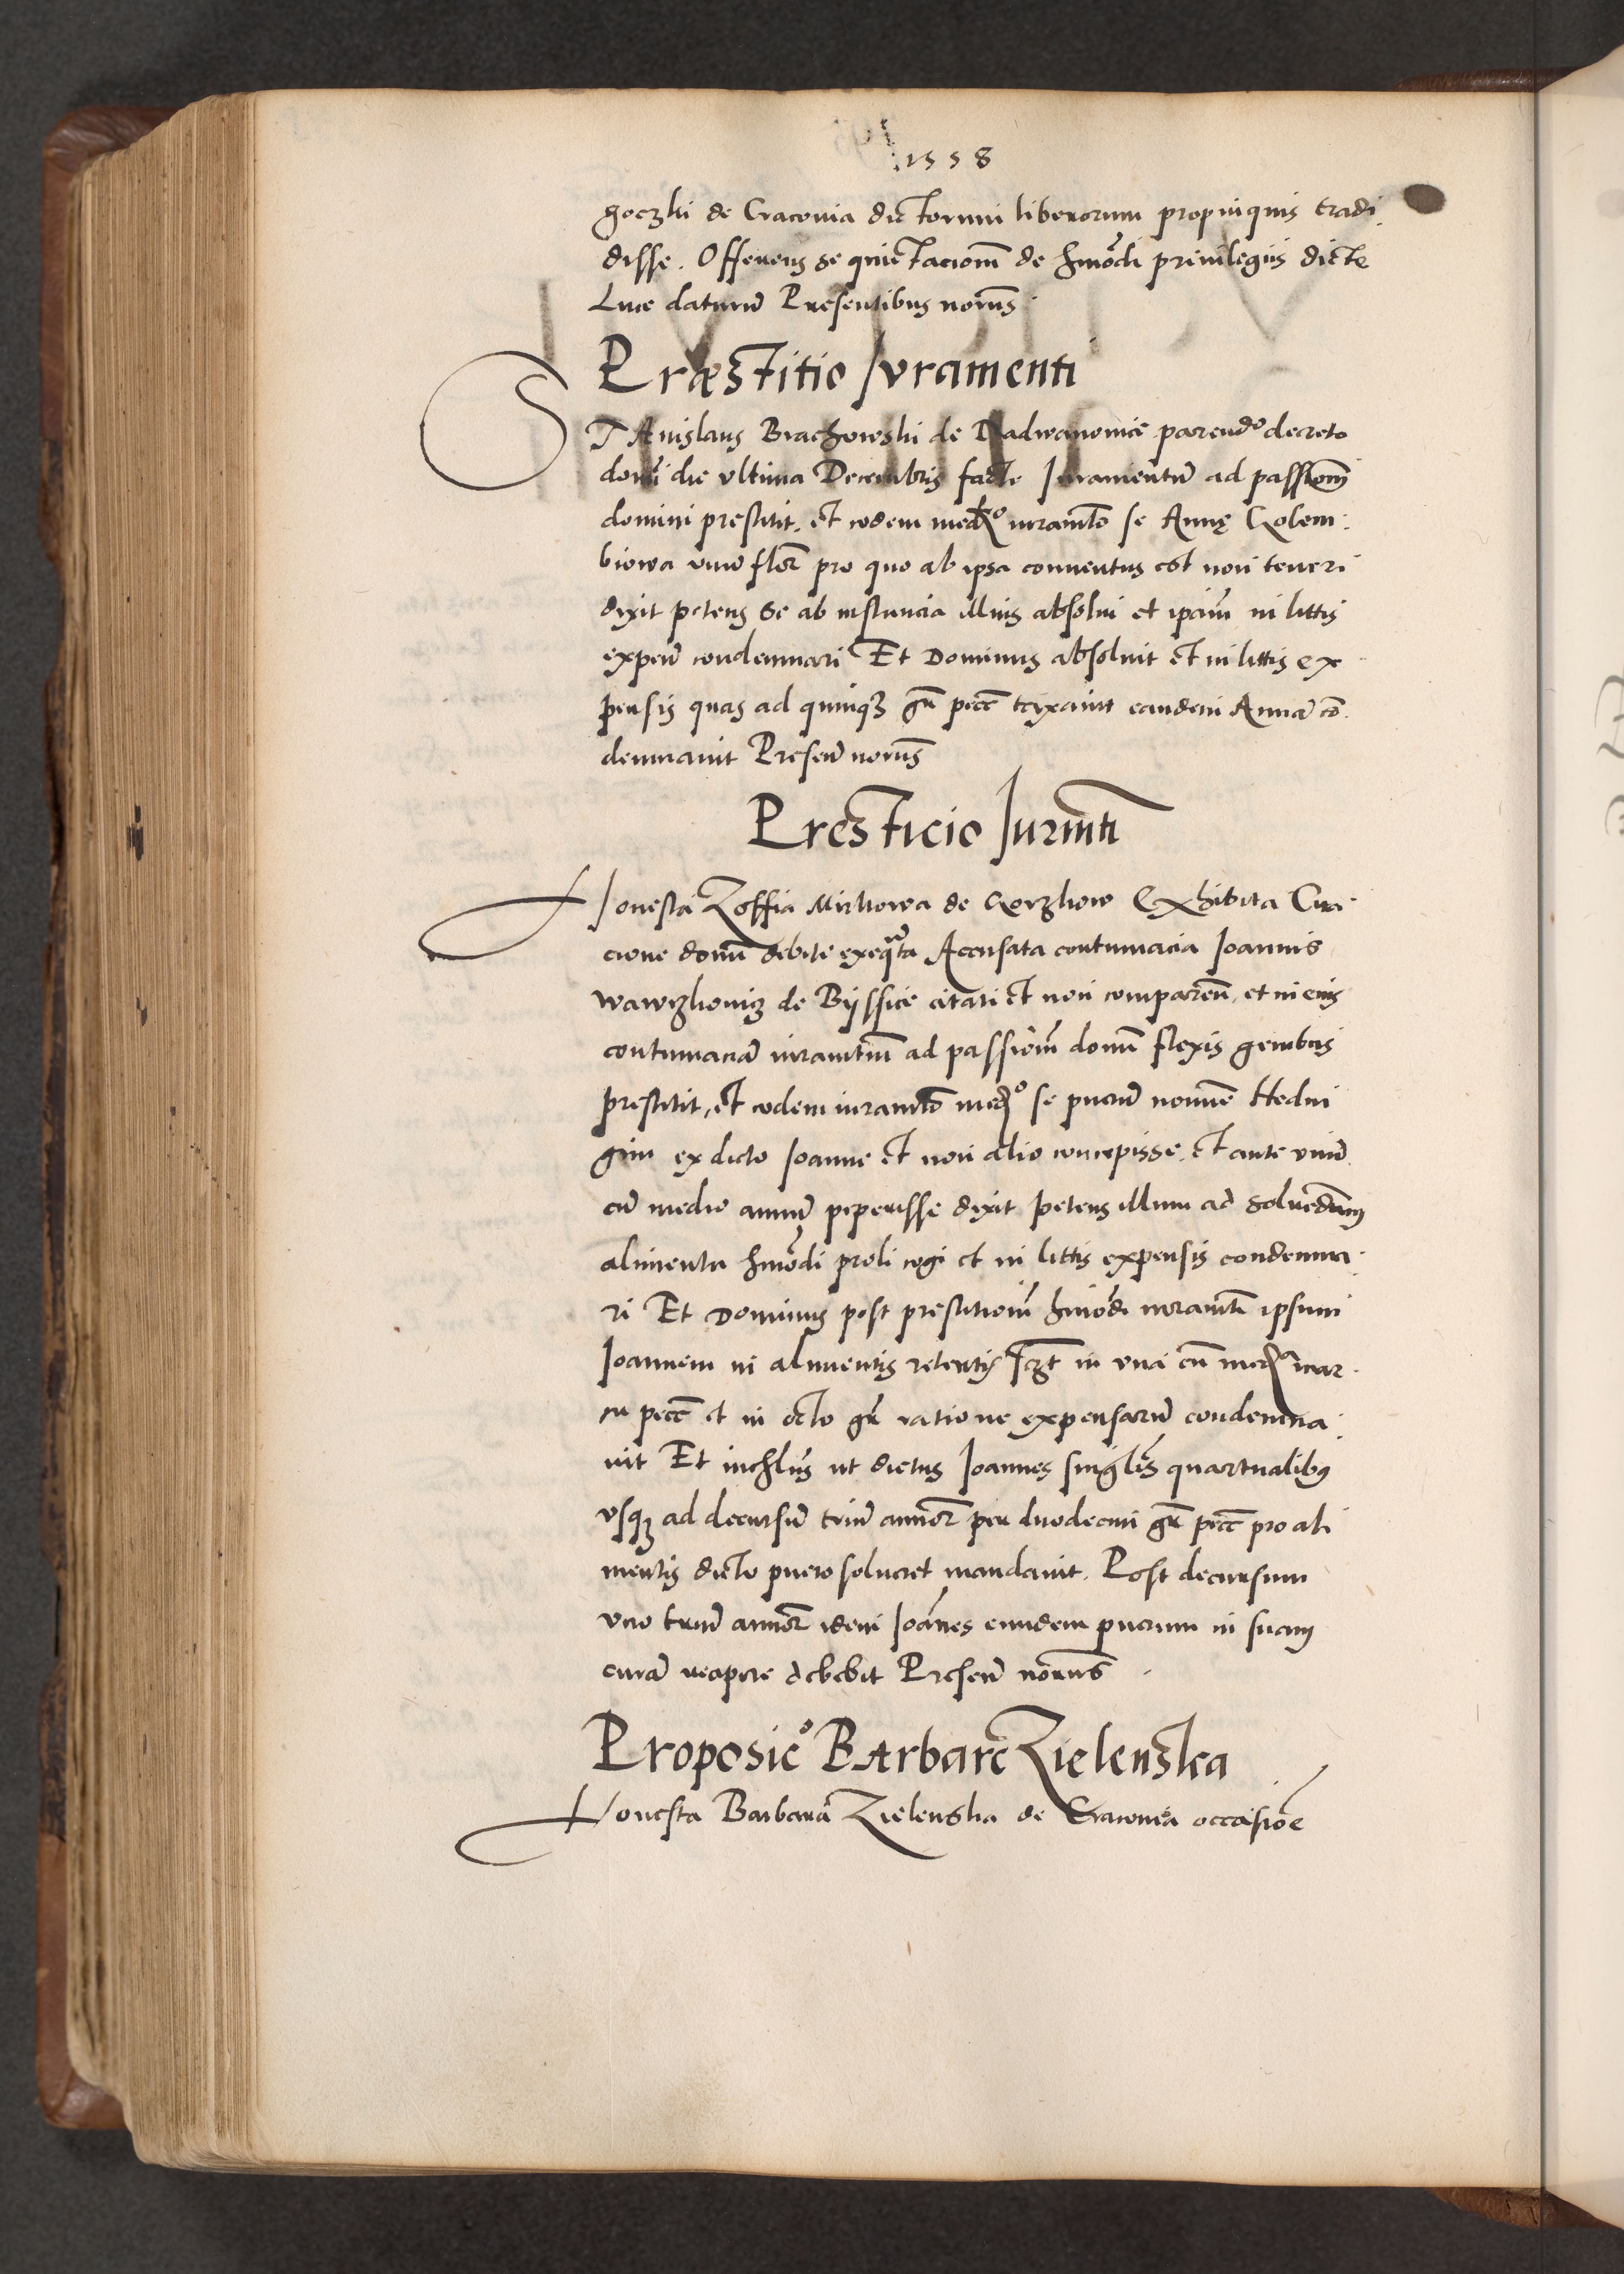 1558
goczki de Cracovia dictorum liberorum propinquis tradi
disse. Offerens se quietacionē de hmōdi privilegiis dicte
Luce daturū Presentibus noriis
Præstitio Iuramenti
STAnislaus Brachowski de Nadwanowice parendo decreto
domi die ultima Decembris facte Iuramentū ad passionē
domini prestitit. et eodem medō iuramto se Annę Golem
biowa unū flor pro quo ab ipsa conventus est non teneri
dixit petens se ab instancia illius absolvi et ipām in littis
expeñ condemnari Et Dominus absolvit et in littis ex
pensis quas ad quinqȝ gr̄ pecc taxavit eandem Annā cō
demnavit Preseñ noriis
Presticio Iurmti
Honesta Zoffia Michowa de Gorzkow Exhibita Cita
cione domī debite exeqta Accusata contumacia Ioannis
wawrzkowicz de Biissice citati et non compareñ. et in eius
contumaciā iuramtum ad passionē domī flexis genibus
prestitit, et eodem iuramto medō se puerū nomine Hedvi
gim ex dicto Ioanne et non alio concepisse. et ante unū
cū medio annū peperisse dixit petens illum ad solvendum
alimenta hmōdi proli cogi et in littis expensis condemna
ri Et Dominus post prestitionē hmōdi iuramti ipsum
Ioannem in alimentis retentis sczt in una cū media mar
ca pecc et in octo gr̄ ratione expensarū condemna
vit Et nichlūs ut dictus Ioannes singlīs quartualibus
usqȝ ad decursū triū annor per duodecim gr̄ pecc pro ali
mentis dicto puero solveret mandavit. Post decursum
vero triū annor idem Ioannes eundem puerum in suam
curā recipere debebit Preseñ noriis
Proposicō Barbare Zielenska
Honesta Barbara Zielenska de Cracovia occasione